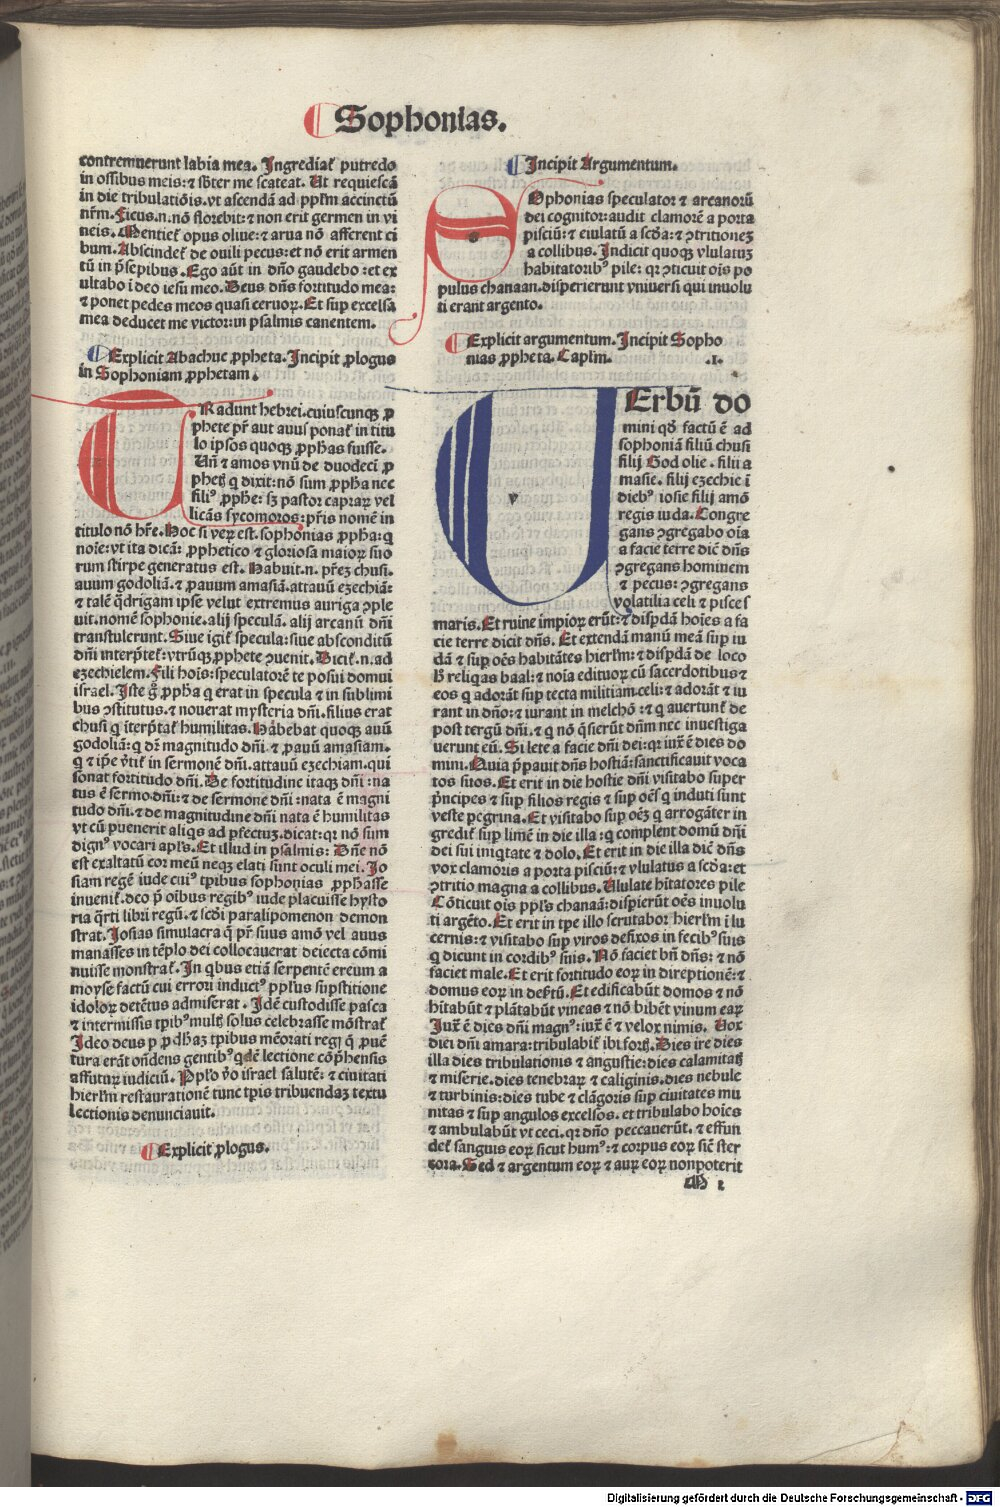 Sophonias.
contremuerunt labia mea. Ingrediat̃ putredo
in ossibus meis: ⁊ sb̃ter me scateat. Ut requiescã
in die tribulatiõis. vt ascendã ad pp̃lm accinctũ
nr̃m. Ficus .n. nõ florebit: ⁊ non erit germen in vi
neis. Mentiet̃ opus oliue: ⁊ arua nõ afferent ci
bum. Abscindet̃ de ouili pecus: et nõ erit armen
tũ in p̃sepibus. Ego aũt in dño gaudebo: et ex
ultabo ĩ deo iesu meo. Deus dñs fortitudo mea:
⁊ ponet pedes meos quasi ceruoꝝ. Et sup excelsa
mea deducet me victor: in psalmis canentem.
Explicit Abachuc ꝓpheta. Incipit ꝓlogus
in Sophoniam ꝓphetam.
TRadunt hebrei. cuiuscunqꝫ ꝓ
phete pr̃ aut auus ponat̃ in titu
lo ipsos quoqꝫ ꝓph̃as fuisse.
Uñ ⁊ amos vnũ de duodecĩ ꝓ
phetꝭ q dixit: nõ sum ꝓph̃a nec
fili⁹ ꝓph̃e: sꝫ pastor capraꝝ vel
licãs sycomoros: pr̃is nomẽ in
titulo nõ hr̃e. Hoc si veꝝ est. sophonias ꝓph̃a: q̃
noĩe: vt ita dicã: ꝓphetico ⁊ gloriosa maioꝝ suo
rum stirpe generatus est. Habuit .n. pr̃eꝫ chusi.
auum godoliã. ⁊ ꝓauum amasiã. attauũ eꝫechiã:
⁊ talẽ q̃drigam ipse velut extremus auriga ꝯple
uit. nomẽ sophonie. alij speculã. alij arcanũ dñi
transtulerunt. Siue igit̃ specula: siue absconditũ
dñi interp̃tet̃: vtrũqꝫ ꝓphete ꝯuenit. Dicit̃ .n. ad
eꝫechielem. Fili hoĩs: speculatorẽ te posui domui
israel. Iste g̃ ꝓph̃a q erat in specula ⁊ in sublimi
bus ꝯstitutus. ⁊ nouerat mysteria dñi. filius erat
chusi q̃ iterp̃tat̃ humilitas. Habebat quoqꝫ auũ
godoliã: q dr̃ magnitudo dñi. ⁊ ꝓauũ amasiam.
q ⁊ ip̃e v̾tit̃ in sermonẽ dñi. attauũ eꝫechiam. qui
sonat fortitudo dñi. De fortitudine itaqꝫ dñi: na
tus ẽ sermo dñi: ⁊ de sermone dñi: nata ẽ magni
tudo dñi. ⁊ de magnitudine dñi nata ẽ humilitas
vt cũ puenerit aliqs ad pfectuꝫ. dicat: qꝛ nõ sum
dign⁹ vocari apl̃s. Et illud in psalmis: Dñe nõ
est exaltatũ cor meũ neqꝫ elati sunt oculi mei. Jo
siam regẽ iude cui⁹ tp̃ibus sophonias ꝓph̃asse
inuenit̃. deo p̃ oĩbus regib⁹ iude placuisse hysto
ria q̃rti libri regũ. ⁊ scd̃i paralipomenon demon
strat. Josias simulacra q̃ pr̃ suus amõ vel auus
manasses in tẽplo dei collocauerat deiecta cõmi
nuisse monstrat̃. In qbus etiã serpentẽ ereum a
moyse factũ cui errori induci⁹ pp̃lus supstitione
idoloꝝ detẽtus admiserat. Idẽ custodisse pasca
⁊ intermissis tp̃ib⁹ multꝭ solus celebrasse mõstrat̃
Ideo deus p ꝓph̃aꝫ tp̃ibus mẽorati regꝭ q̃ ꝓuẽ
tura erãt oñdens gentib⁹ qdẽ lectione cõp̃hensis
affuturꝝ iudiciũ. Pp̃lo v̾o israel salutẽ: ⁊ ciuitati
hierl̃m restaurationẽ tunc tp̃is tribuendaꝫ textu
lectionis denunciauit.
Explicit ꝓlogus.
Incipit Argumentum.
SOphonias speculator ⁊ arcanorũ
dei cognitor: audit clamorẽ a porta
pisciũ: ⁊ eiulatũ a scd̃a: ⁊ ꝯtritioneꝫ
a collibus. Indicit quoqꝫ vlulatuꝫ
habitatorib⁹ pile: qꝛ ꝯticuit oĩs po
pulus chanaan. disperierunt vniuersi qui inuolu
ti erant argento.
Explicit argumentum. Incipit Sopho
nias ꝓpheta. Capl̃m. .I.
UErbũ do
mini qd̃ factũ ẽ ad
sophoniã filiũ chusi
filij God olie. filii a
masie. filij eꝫechie ĩ
dieb⁹ iosie filij amõ
regis iuda. Congre
gans ꝯgregabo oĩa
a facie terre dicit dñs
ꝯgregans hominem
⁊ pecus: ꝯgregans
volatilia celi ⁊ pisces
maris. Et ruine impioꝝ erũt: ⁊ disp̃dã hoĩes a fa
cie terre dicit dñs. Et extendã manũ meã sup iu
dã ⁊ sup oẽs habitãtes hierl̃m: ⁊ disp̃dã de loco
h̃ reliqas baal: ⁊ noĩa edituoꝝ cũ sacerdotibus ⁊
eos q adorãt sup tecta militiam celi: ⁊ adorãt ⁊ iu
rant in dño: ⁊ iurant in melchõ: ⁊ q auertunt̃ de
post tergũ dñi. ⁊ q nõ q̃sierũt dñm nec inuestiga
uerunt eũ. Silete a facie dñi dei: qꝛ iux̃ ẽ dies do
mini. Quia p̃pauit dñs hostiã: sanctificauit voca
tos suos. Et erit in die hostie dñi visitabo super
p̃ncipes ⁊ sup filios regis ⁊ sup oẽs q induti sunt
veste pegrina. Et visitabo sup oẽꝫ q arrogãter in
gredit̃ sup limẽ in die illa: q complent domũ dñi
dei sui iniqtate ⁊ dolo. Et erit in die illa dicit dñs
vox clamoris a porta pisciũ: ⁊ vlulatus a scd̃a: et
ꝯtritio magna a collibus. Ululate hĩtatores pile
Cõticuit oĩs pp̃ls chanaã: dispierũt oẽs inuolu
ti argẽto. Et erit in tp̃e illo scrutabor hierl̃m ĩ lu
cernis: ⁊ visitabo sup viros defixos in fecib⁹ suis
q dicunt in cordib⁹ suis. Nõ faciet bñ dñs: ⁊ nõ
faciet male. Et erit fortitudo eoꝝ in direptionẽ: ⁊
domus eoꝝ in deẽtũ. Et edificabũt domos ⁊ nõ
hĩtabũt ⁊ plãtabũt vineas ⁊ nõ bibẽt vinum eaꝝ
Iux̃ ẽ dies dñi magn⁹: iux̃ ẽ ⁊ velox nimis. Uox
diei dñi amara: tribulabit̃ ibi fortꝭ. Dies ire dies
illa dies tribulationis ⁊ angustie: dies calamitatꝭ
⁊ miserie. dies tenebraꝝ ⁊ caliginis. dies nebule
⁊ turbinis: dies tube ⁊ clãgoris sup ciuitates mu
nitas ⁊ sup angulos excelsos. et tribulabo hoĩes
⁊ ambulabũt vt ceci. qꝛ dño peccauerũt. ⁊ effun
det̃ sanguis eoꝝ sicut hum⁹: ⁊ corpus eoꝝ sic̃ ster
cora. Sed ⁊ argentum eoꝝ ⁊ auꝝ eoꝝ non poterit
M 1
Digitalisierung gefördert durch die Deutsche Forschungsgemeinschaft - DFG